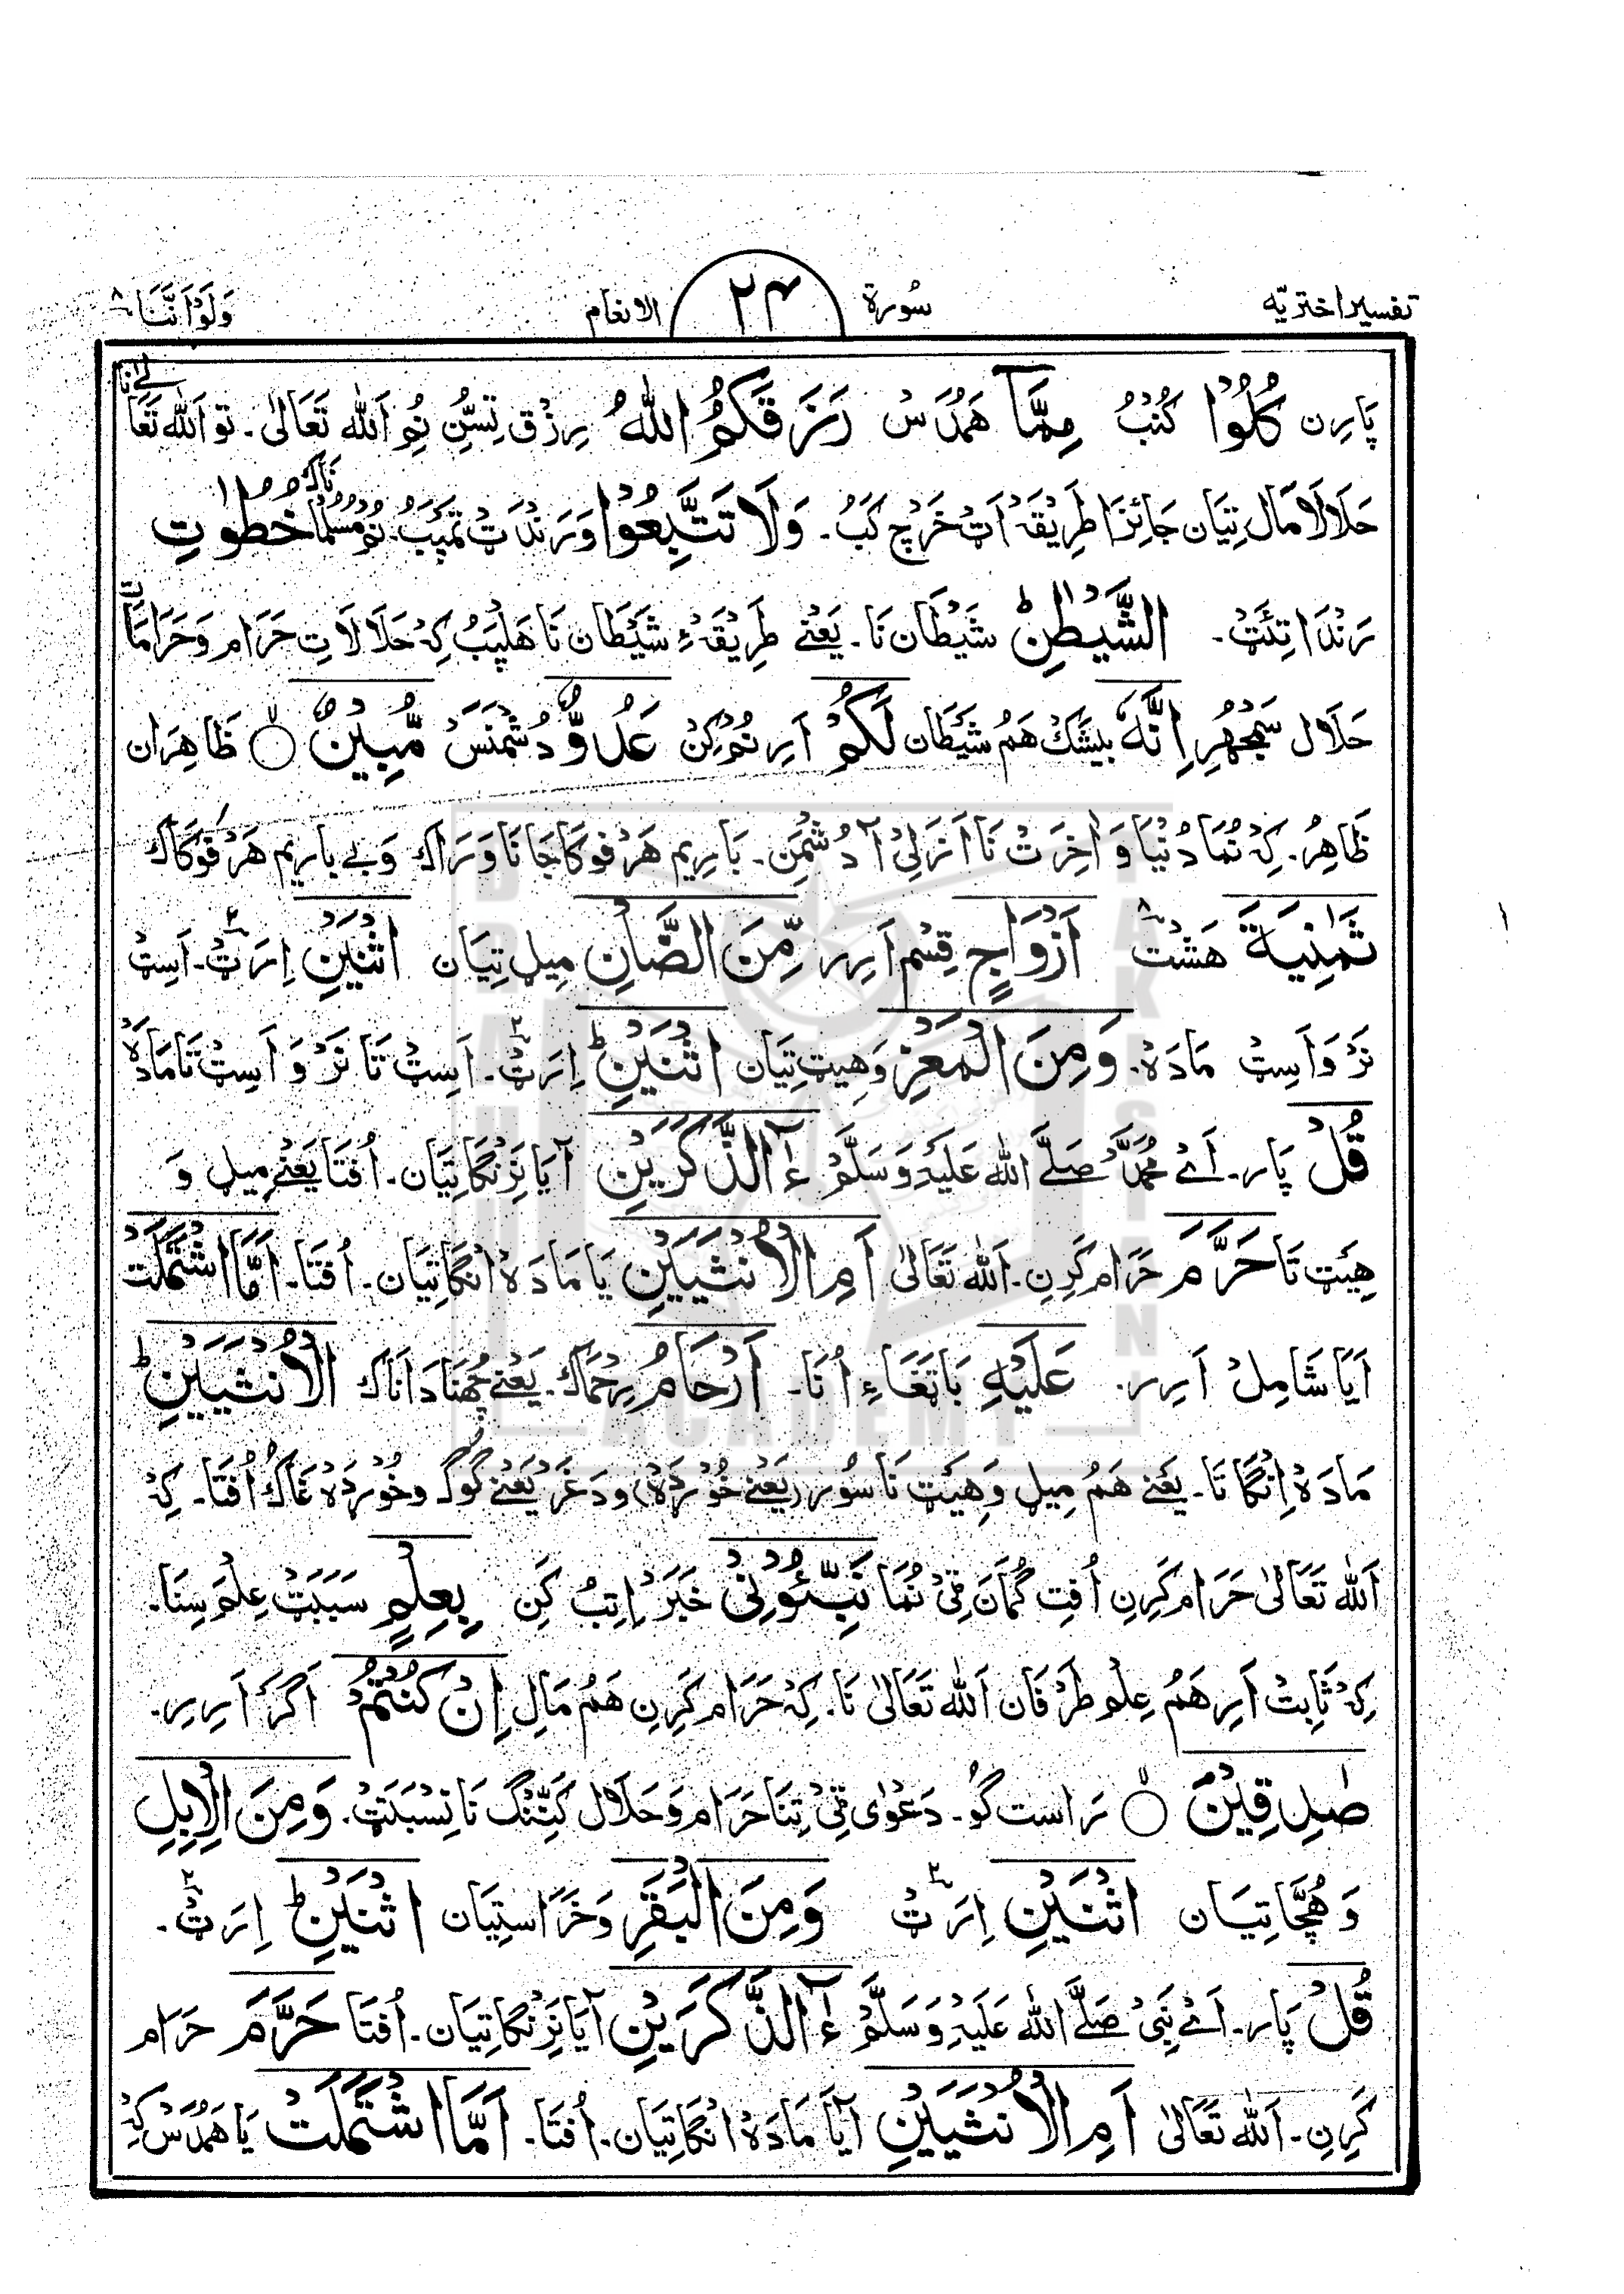 تفسیر اختریه سُورة ۲۴ الانعام وَلَوْاَنَّنَا ۸
پَارِن كُلُوْا كُنْبُ مِمَّا هَمُدَسْ رَزَقَكُمُ اللّٰهُ رِزْق تِسُّنِ نُمِ اَللّٰه تَعَالیٰ۔ تو اَللّٰه تَعَالیٰ نا
حَلَالَا مَال تِیَان جَائِزَا طَرِیْقَہ اَٹْ خَرْچ کَبُ۔ وَلَا تَتَّبِعُوْا وَرَنْدَٹ تَمِپَبُ۔ نُمْ مُسُلمانَاک خُطُوٰتِ
رَنْدَاتِئَتْ۔ الشَّيْطٰنِ ؕ شَیْطَان نَا۔ یَعْنِے طَرِیْقَہءِ شَیْطَان نَا هَلِپَبُ کِہْ حَلَالَاتِ حَرَام وَحَرَامَاتِ
حَلَال سَمْجھِرِ اِنَّهٗ بیشَکْ هَمُ شَیْطَان لَكُمْ اَرِ نُمْکِنْ عَدُوٌّ دُشْمَنَسْ مُّبِيْنٌ ○ ظَاهِرَان
ظَاهِرُ۔ کِہْ نُمَا دُنْیَا وَاٰخِرَتْ نَا اَزَلِیْ آ دُشْمَن۔ بَارِیم هَرْفوکَا جَانَاوَرَاک وَبے باریم هَرْفوکَاک
ثَمٰنِيَةَ هَشْتْ ۸ اَزْوَاجٍ قِسْم اَرِر مِّنَ الضَّاْنِ مِیل تِیَان اثْنَيْنِ اِرَٹْ ۲۔ اَسِٹ
نَرْ وَاَسِٹ مَادَہْ۔ وَمِنَ الْمَعْزِ وَهِیٹ تِیَان اثْنَيْنِ ؕ اِرَٹْ ۲۔ اَسِٹْ تَا نَرْ وَ اَسِٹْ تَا مَادَہْ
قُلْ پَار۔ اَئے مُحَمَّدْ صَلَّے اللّٰه عَلَیْہِ وَسَلَّمْ ءٰٓالذَّكَرَيْنِ آیَا نَرَنْگَا تِیَان۔ اُفتَا یَعْنِے مِیل وَ
هِیَٹ تَا حَرَّمَ حَرَام کَرِن۔ اَللّٰه تَعَالیٰ اَمِ الْاُنْثَيَيْنِ یَا مَادَہْ اَنْگَا تِیَان۔ اُفتَا۔ اَمَّا اشْتَمَلَتْ
اَیَا شَامِلْ اَرِر۔ عَلَيْهِ بَاتَغَاءِ اُنَا۔ اَرْحَامُ رِحْمَاک۔ یَعْنِے چُهنَادَانَاک الْاُنْثَيَيْنِ ؕ
مَادَہْ اِنْگَا تَا۔ یَعْنِے هَمُ مِیل وَهِیَٹ نَا سُور (یَعْنِے خُوْرْدَہْ) ودَغَرْ یَعْنِے گوگ وخُوْرْدَہْ غَاکْ اُفتَا۔ کِہْ
اَللّٰه تَعَالیٰ حَرَام کَرِن اُفتِ گُمَان ٹِیْ نُمَا نَبِّـُٔوْنِيْ خَبَرْ اِتِبُ کَنِ بِعِلْمٍ سَبَبَٹْ عِلْمَ سِنَا۔
کِہْ ثَابِتْ اَرِ هَمُ عِلْم طَرْفَان اَللّٰه تَعَالیٰ نَا۔ کِہْ حَرَام کَرِن هَمُ مَالِ اِنْ كُنْتُمْ اَگَرْ اَرِیرِ۔
صٰدِقِيْنَ ○ رَاست گو۔ دَعْوٰی ٹِیْ تِنَا حَرَام وَحَلَال کَنِّنْگ نَا نِسْبَتَٹْ۔ وَمِنَ الْاِبِلِ
وَهُچَّا تِیَان اثْنَيْنِ اِرَٹْ ۲ وَمِنَ الْبَقَرِ وَخَرَاستِیَان اثْنَيْنِ ؕ اِرَٹْ ۲۔
قُلْ پَار۔ اَئے نَبِیْ صَلَّے اللّٰه عَلَیْہِ وَسَلَّمْ ءٰٓالذَّكَرَيْنِ آیَا نَرَنْگَا تِیَان۔ اُفتَا حَرَّمَ حَرَام
کَرِن۔ اَللّٰه تَعَالیٰ اَمِ الْاُنْثَيَيْنِ آیَا مَادَہْ اَنْگَا تِیَان۔ اُفتَا۔ اَمَّا اشْتَمَلَتْ یَا هَمُدَسْ کِہْ
BRAHUI
ACADEMY
PAKISTAN